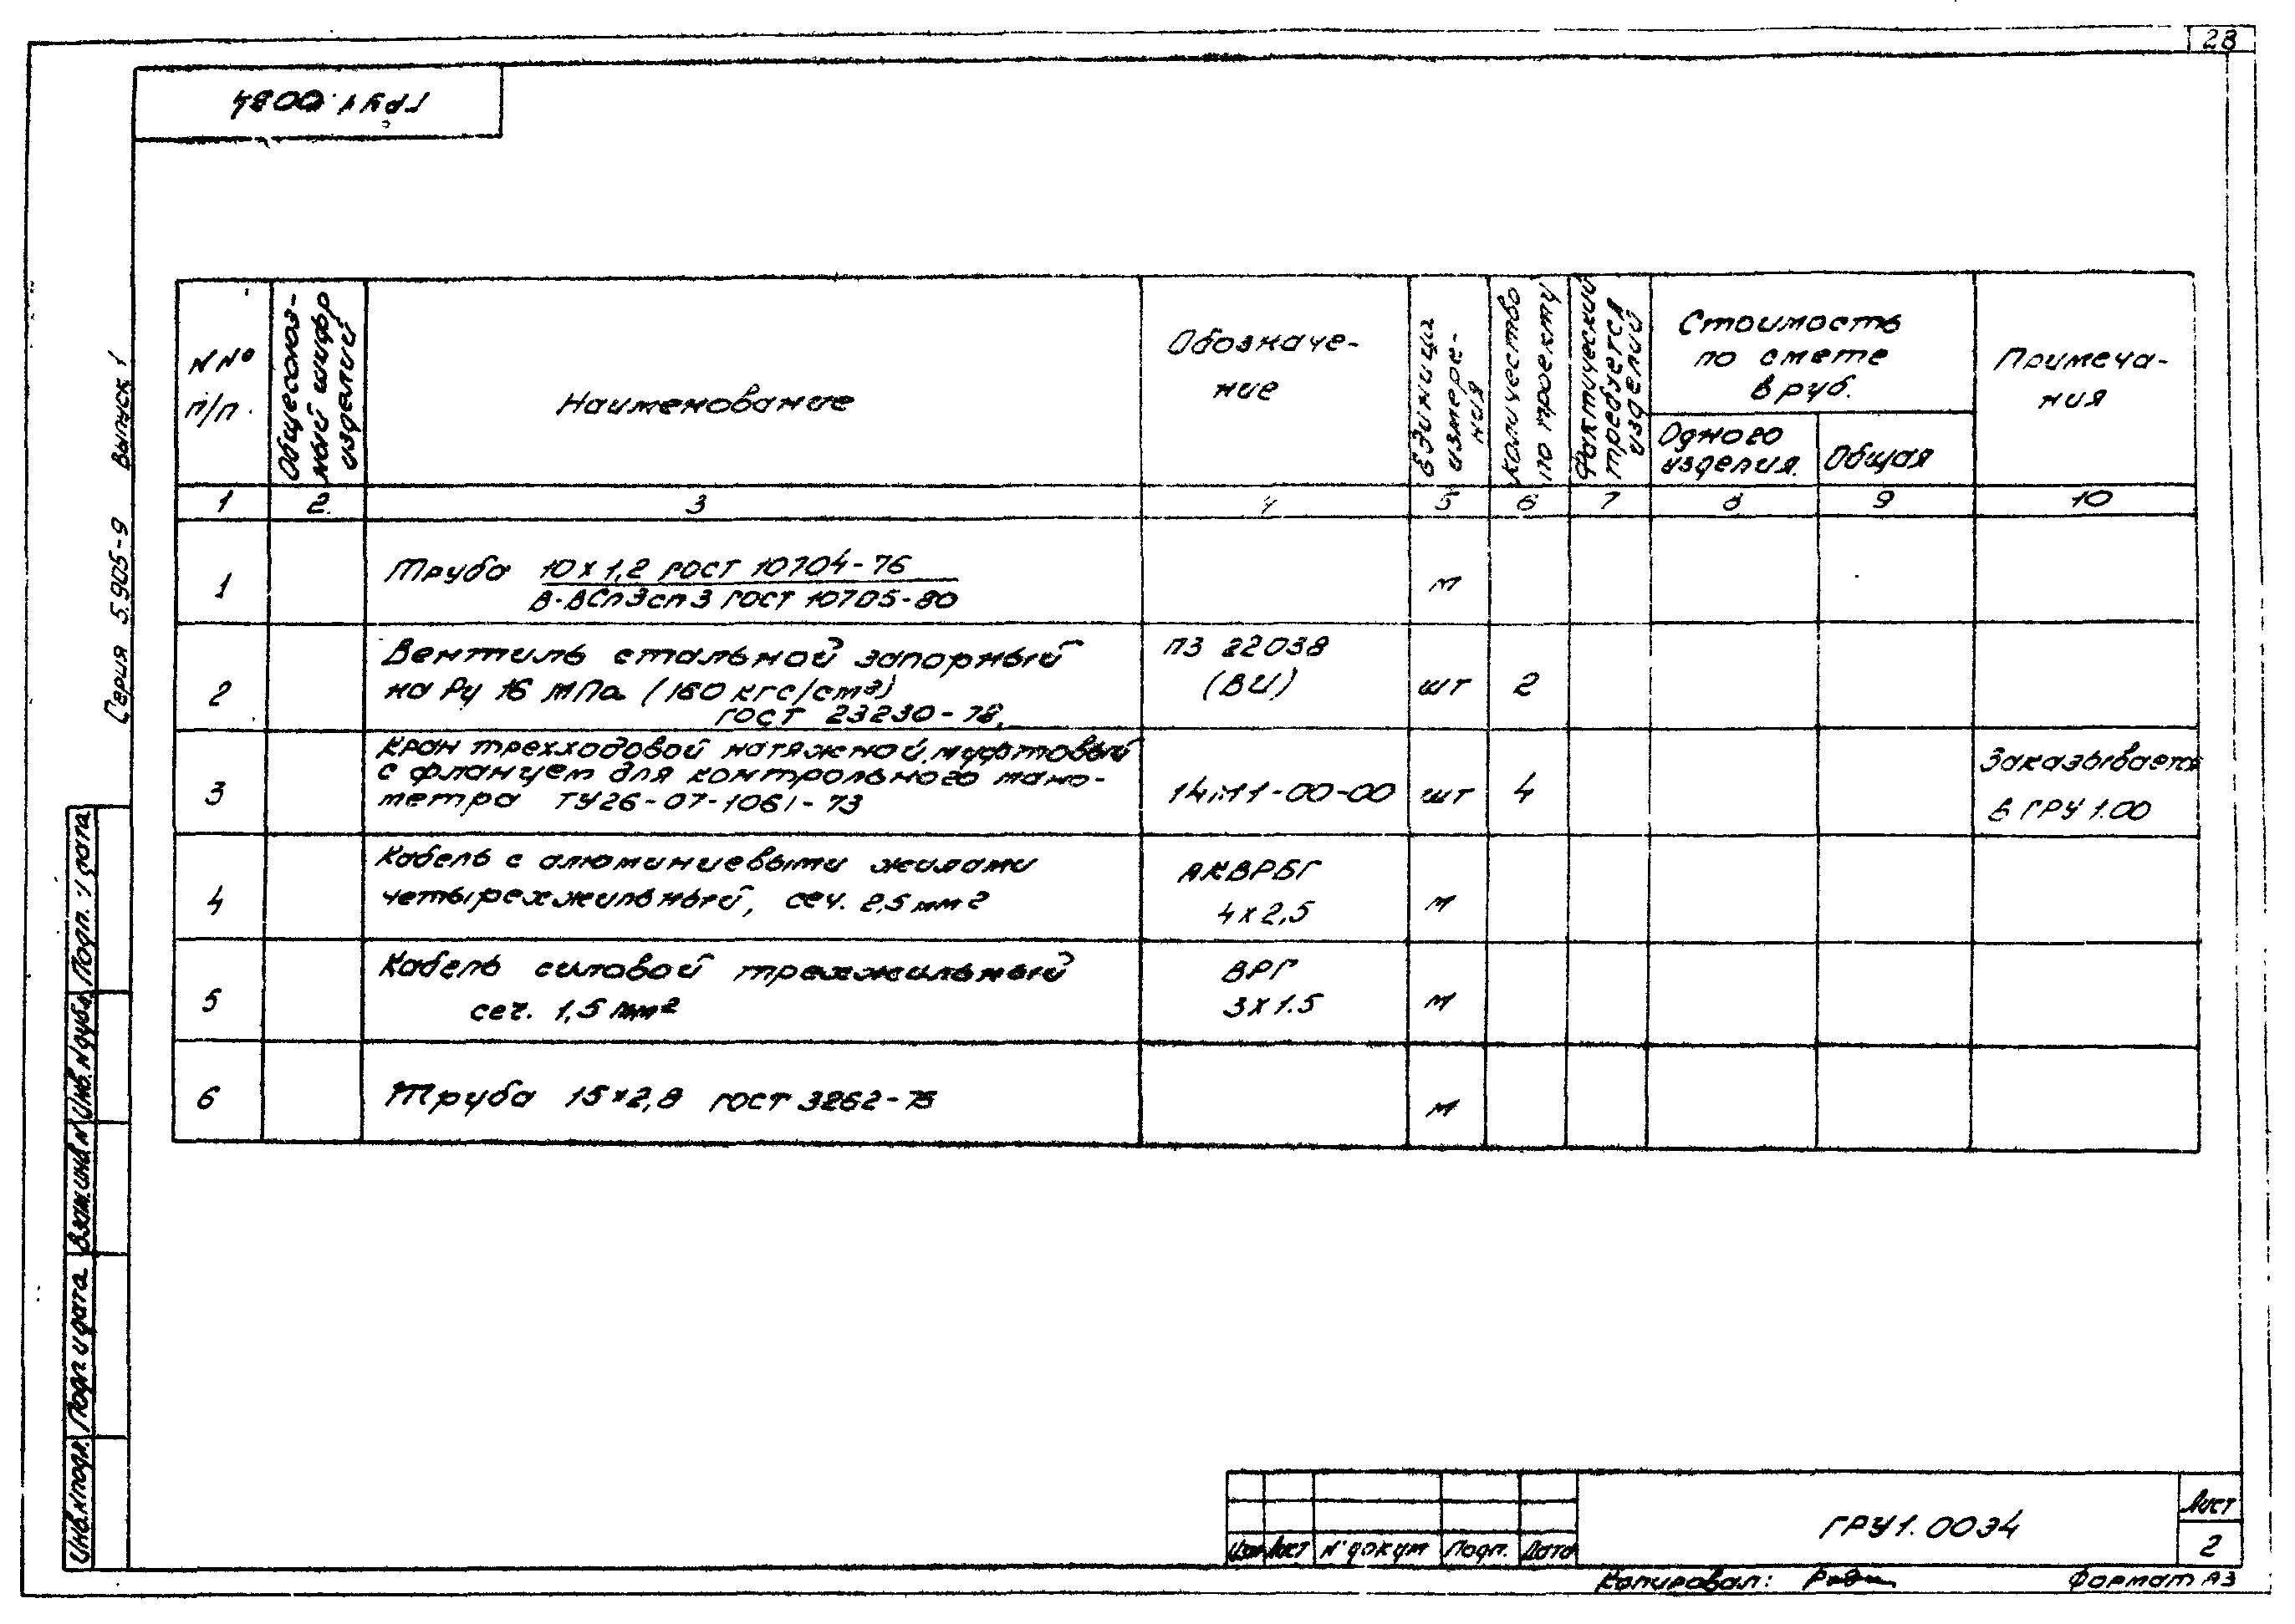 28
ГРУ 1.00Э4
Серия 5.905-9 Выпуск 1
NNº п/п.
Общесоюз-
ный шифр
изделий
Наименование
Обозначе-
ние
Единица
измере-
ния
Количество
по проекту
Фактический
требуется
изделий
Стоимость
по смете
в руб.
Одного
изделия.
Общая
Примеча-
ния
1 2 3 4 5 6 7 8 9 10
1 Труба 10 х 1,2 ГОСТ 10704-76 м
В-ВСп3сп3 ГОСТ 10705-80
2 Вентиль стальной запорный ПЗ 22038 шт 2
на Ру 16 МПа (160 кгс/см²) (ВИ)
ГОСТ 23230-78
3 Кран трехходовой натяжной муфтовый 14М1-00-00 шт 4 Заказывается
с фланцем для контрольного мано- в ГРУ 1.00
метра ТУ26-07-1061-73
4 Кабель с алюминиевыми жилами АКВРБГ м
четырехжильный, сеч. 2,5 мм² 4х2,5
5 Кабель силовой трехжильный ВРГ м
сеч. 1,5 мм² 3х1.5
6 Труба 15х2,8 ГОСТ 3262-75 м
Инв.Nподл. Подп. и дата Взам.инв.N Инв.Nдубл. Подп. и дата
Изм Лист N докум Подп. Дата
ГРУ1.00Э4
Лист
2
Копировал:
Формат А3